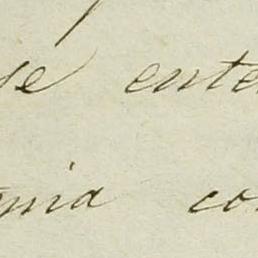 se ente
mia co